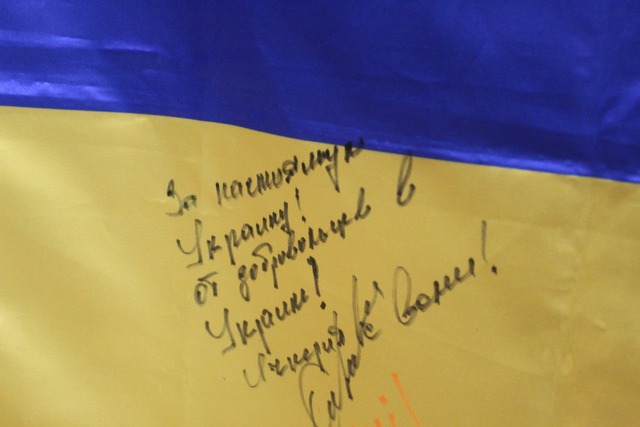 За настоящую
Украину!
От добровольцев в
Украине!
Ичкерия
Вони!
ї!